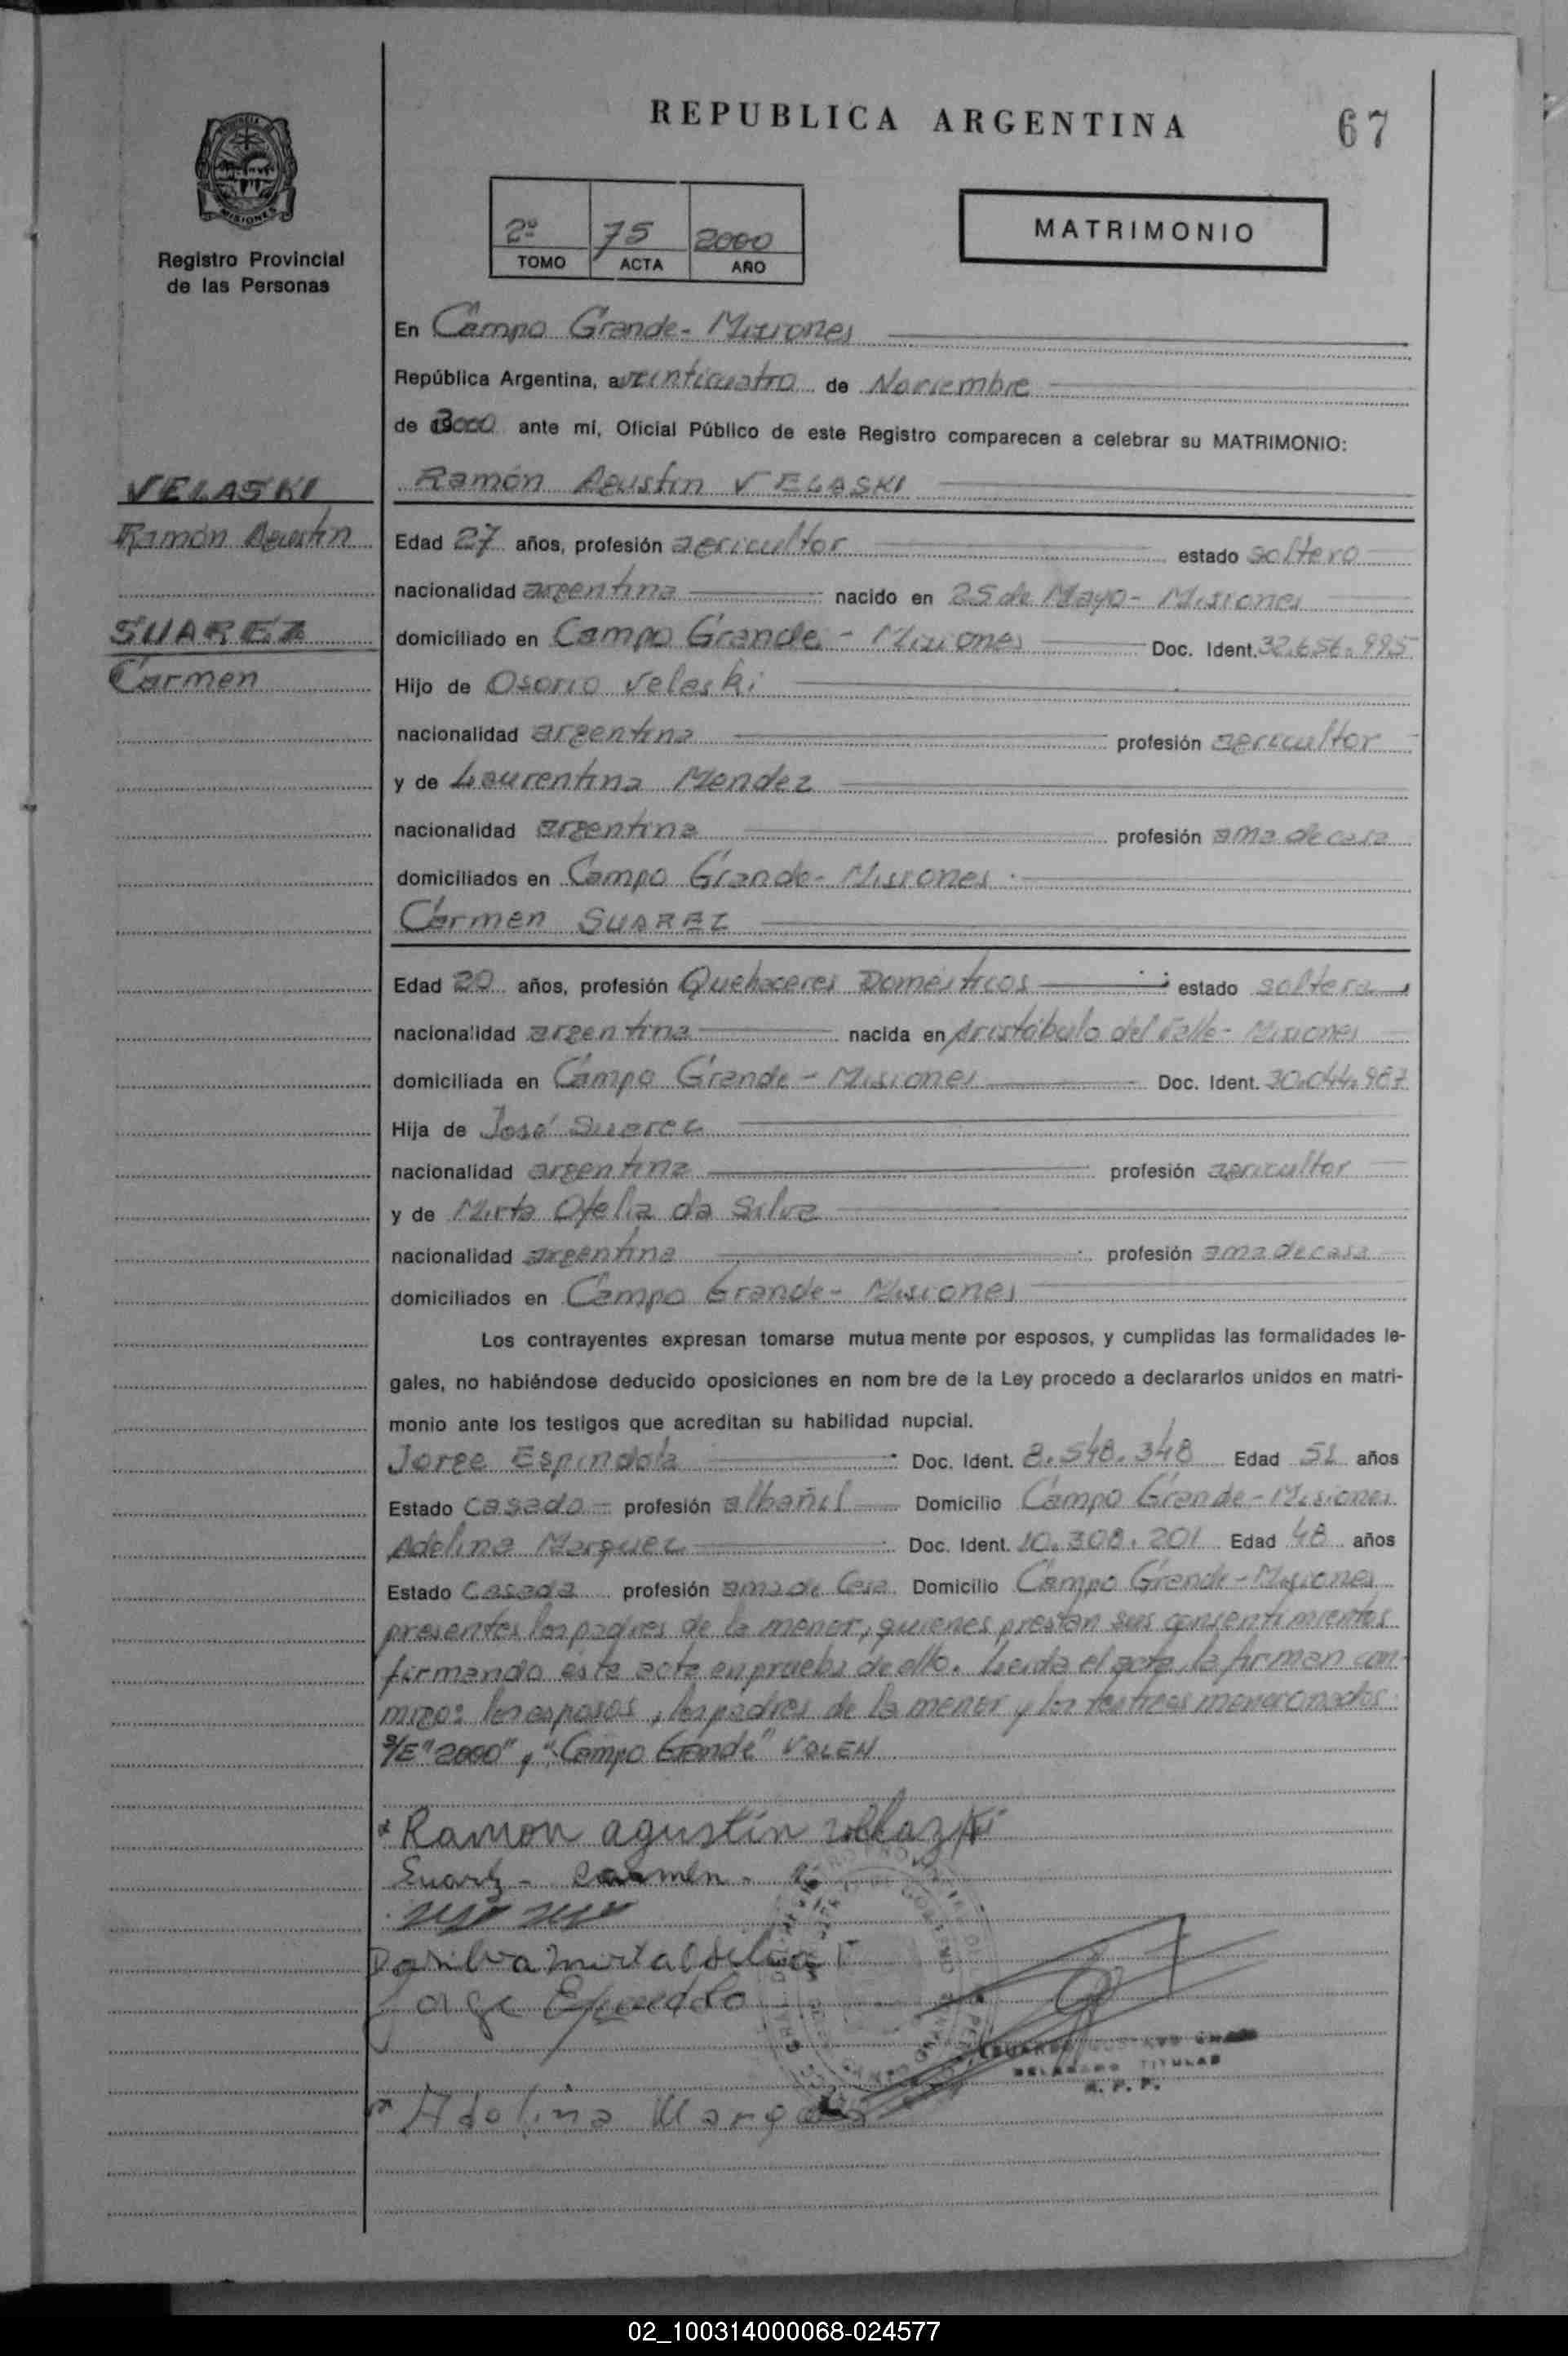 REPUBLICA ARGENTINA
67
PROVINCIA
MISIONES
Registro Provincial
de las Personas
2º 75 2000
TOMO ACTA AÑO
MATRIMONIO
En Campo Grande - Misiones
República Argentina, a veinticuatro de Noviembre
de 2000 ante mí, Oficial Público de este Registro comparecen a celebrar su MATRIMONIO:
VELASKI
Ramón Agustín VELASKI
Ramón Agustín
Edad 27 años, profesión agricultor estado soltero
nacionalidad argentina nacido en 25 de Mayo - Misiones
SUAREZ
domiciliado en Campo Grande - Misiones Doc. Ident. 32.656.995
Carmen
Hijo de Osorio Velaski
nacionalidad argentina profesión agricultor
y de Laurentina Mendez
nacionalidad argentina profesión ama de casa
domiciliados en Campo Grande - Misiones
Carmen SUAREZ
Edad 20 años, profesión Quehaceres Domésticos estado soltera
nacionalidad argentina nacida en Aristóbulo del Valle - Misiones
domiciliada en Campo Grande - Misiones Doc. Ident. 30.044.967
Hija de José Suarez
nacionalidad argentina profesión agricultor
y de Mirta Ofelia da Silva
nacionalidad argentina profesión ama de casa
domiciliados en Campo Grande - Misiones
Los contrayentes expresan tomarse mutua mente por esposos, y cumplidas las formalidades le-
gales, no habiéndose deducido oposiciones en nom bre de la Ley procedo a declararlos unidos en matri-
monio ante los testigos que acreditan su habilidad nupcial.
Jorge Espindola Doc. Ident. 8.548.348 Edad 51 años
Estado casado - profesión albañil Domicilio Campo Grande - Misiones
Adelina Marquez Doc. Ident. 10.308.201 Edad 48 años
Estado casada profesión ama de casa Domicilio Campo Grande - Misiones
presentes los padres de la menor, quienes prestan sus consentimientos
firmando ésta acta en prueba de ello. Leida el acta, la firman con-
migo: los esposos, los padres de la menor y los testigos mencionados.
S/E "2000", "Campo Grande" VALEN
Ramon agustin
Suarez - Carmen.
Da silva mirta
Jorge
Adelina
DELEGADO TITULAR
R. P. P.
02_100314000068-024577